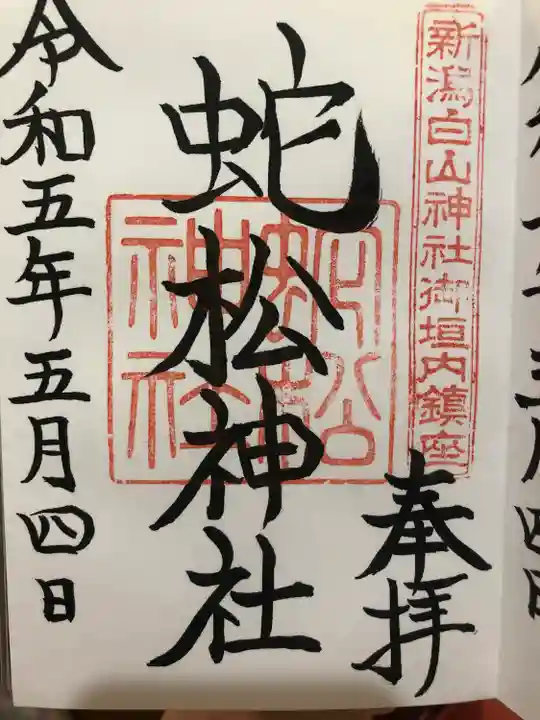 新潟白山神社御垣内鎮座
奉拝
蛇松神社
蛇松神社
令和五年五月四日